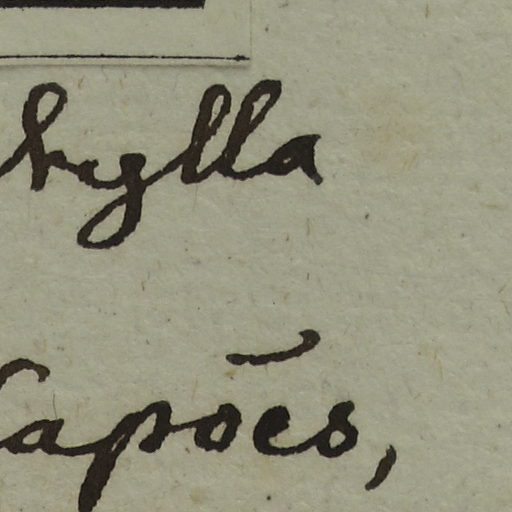 hylla
Capões,